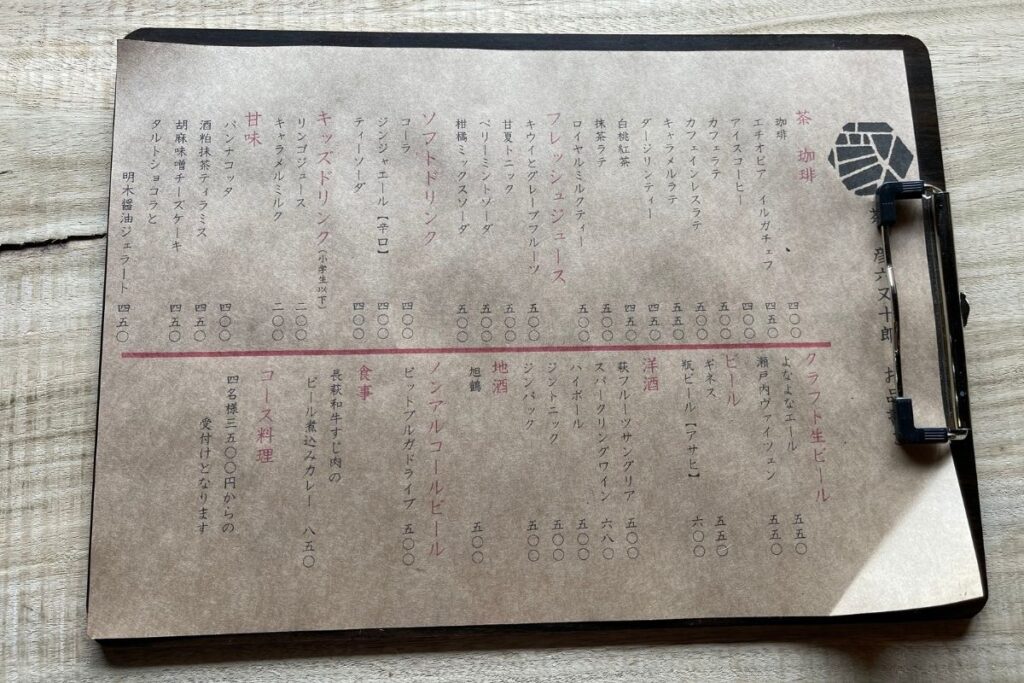 彦六又十郎 お品
茶 珈琲
珈琲 四〇〇
エチオピア イルガチェフ 四五〇
アイスコーヒー 四〇〇
カフェラテ 五〇〇
カフェインレスラテ 五〇〇
キャラメルラテ 五五〇
ダージリンティー 四五〇
白桃紅茶 四五〇
抹茶ラテ 五〇〇
ロイヤルミルクティー 五〇〇
フレッシュジュース
キウイとグレープフルーツ 五〇〇
甘夏トニック 五〇〇
ベリーミントソーダ 五〇〇
柑橘ミックスソーダ 五〇〇
ソフトドリンク
コーラ 四〇〇
ジンジャエール【辛口】 四〇〇
ティーソーダ 四〇〇
キッズドリンク(小学生以下)
リンゴジュース 二〇〇
キャラメルミルク 二〇〇
甘味
パンナコッタ 四〇〇
酒粕抹茶ティラミス 四五〇
胡麻味噌チーズケーキ 四五〇
タルトショコラと
明木醤油ジェラート 四五〇
クラフト生ビール
よなよなエール 五五〇
瀬戸内ヴァイツェン 五五〇
ビール
ギネス 五五〇
瓶ビール【アサヒ】 六〇〇
洋酒
萩フルーツサングリア 五〇〇
スパークリングワイン 六八〇
ハイボール 五〇〇
ジントニック 五〇〇
ジンバック 五〇〇
地酒
旭鶴 五〇〇
ノンアルコールビール
ビットブルガドライブ 五〇〇
食事
長萩和牛すじ肉の
ビール煮込みカレー 八五〇
コース料理
四名様三五〇〇円からの
受付けとなります